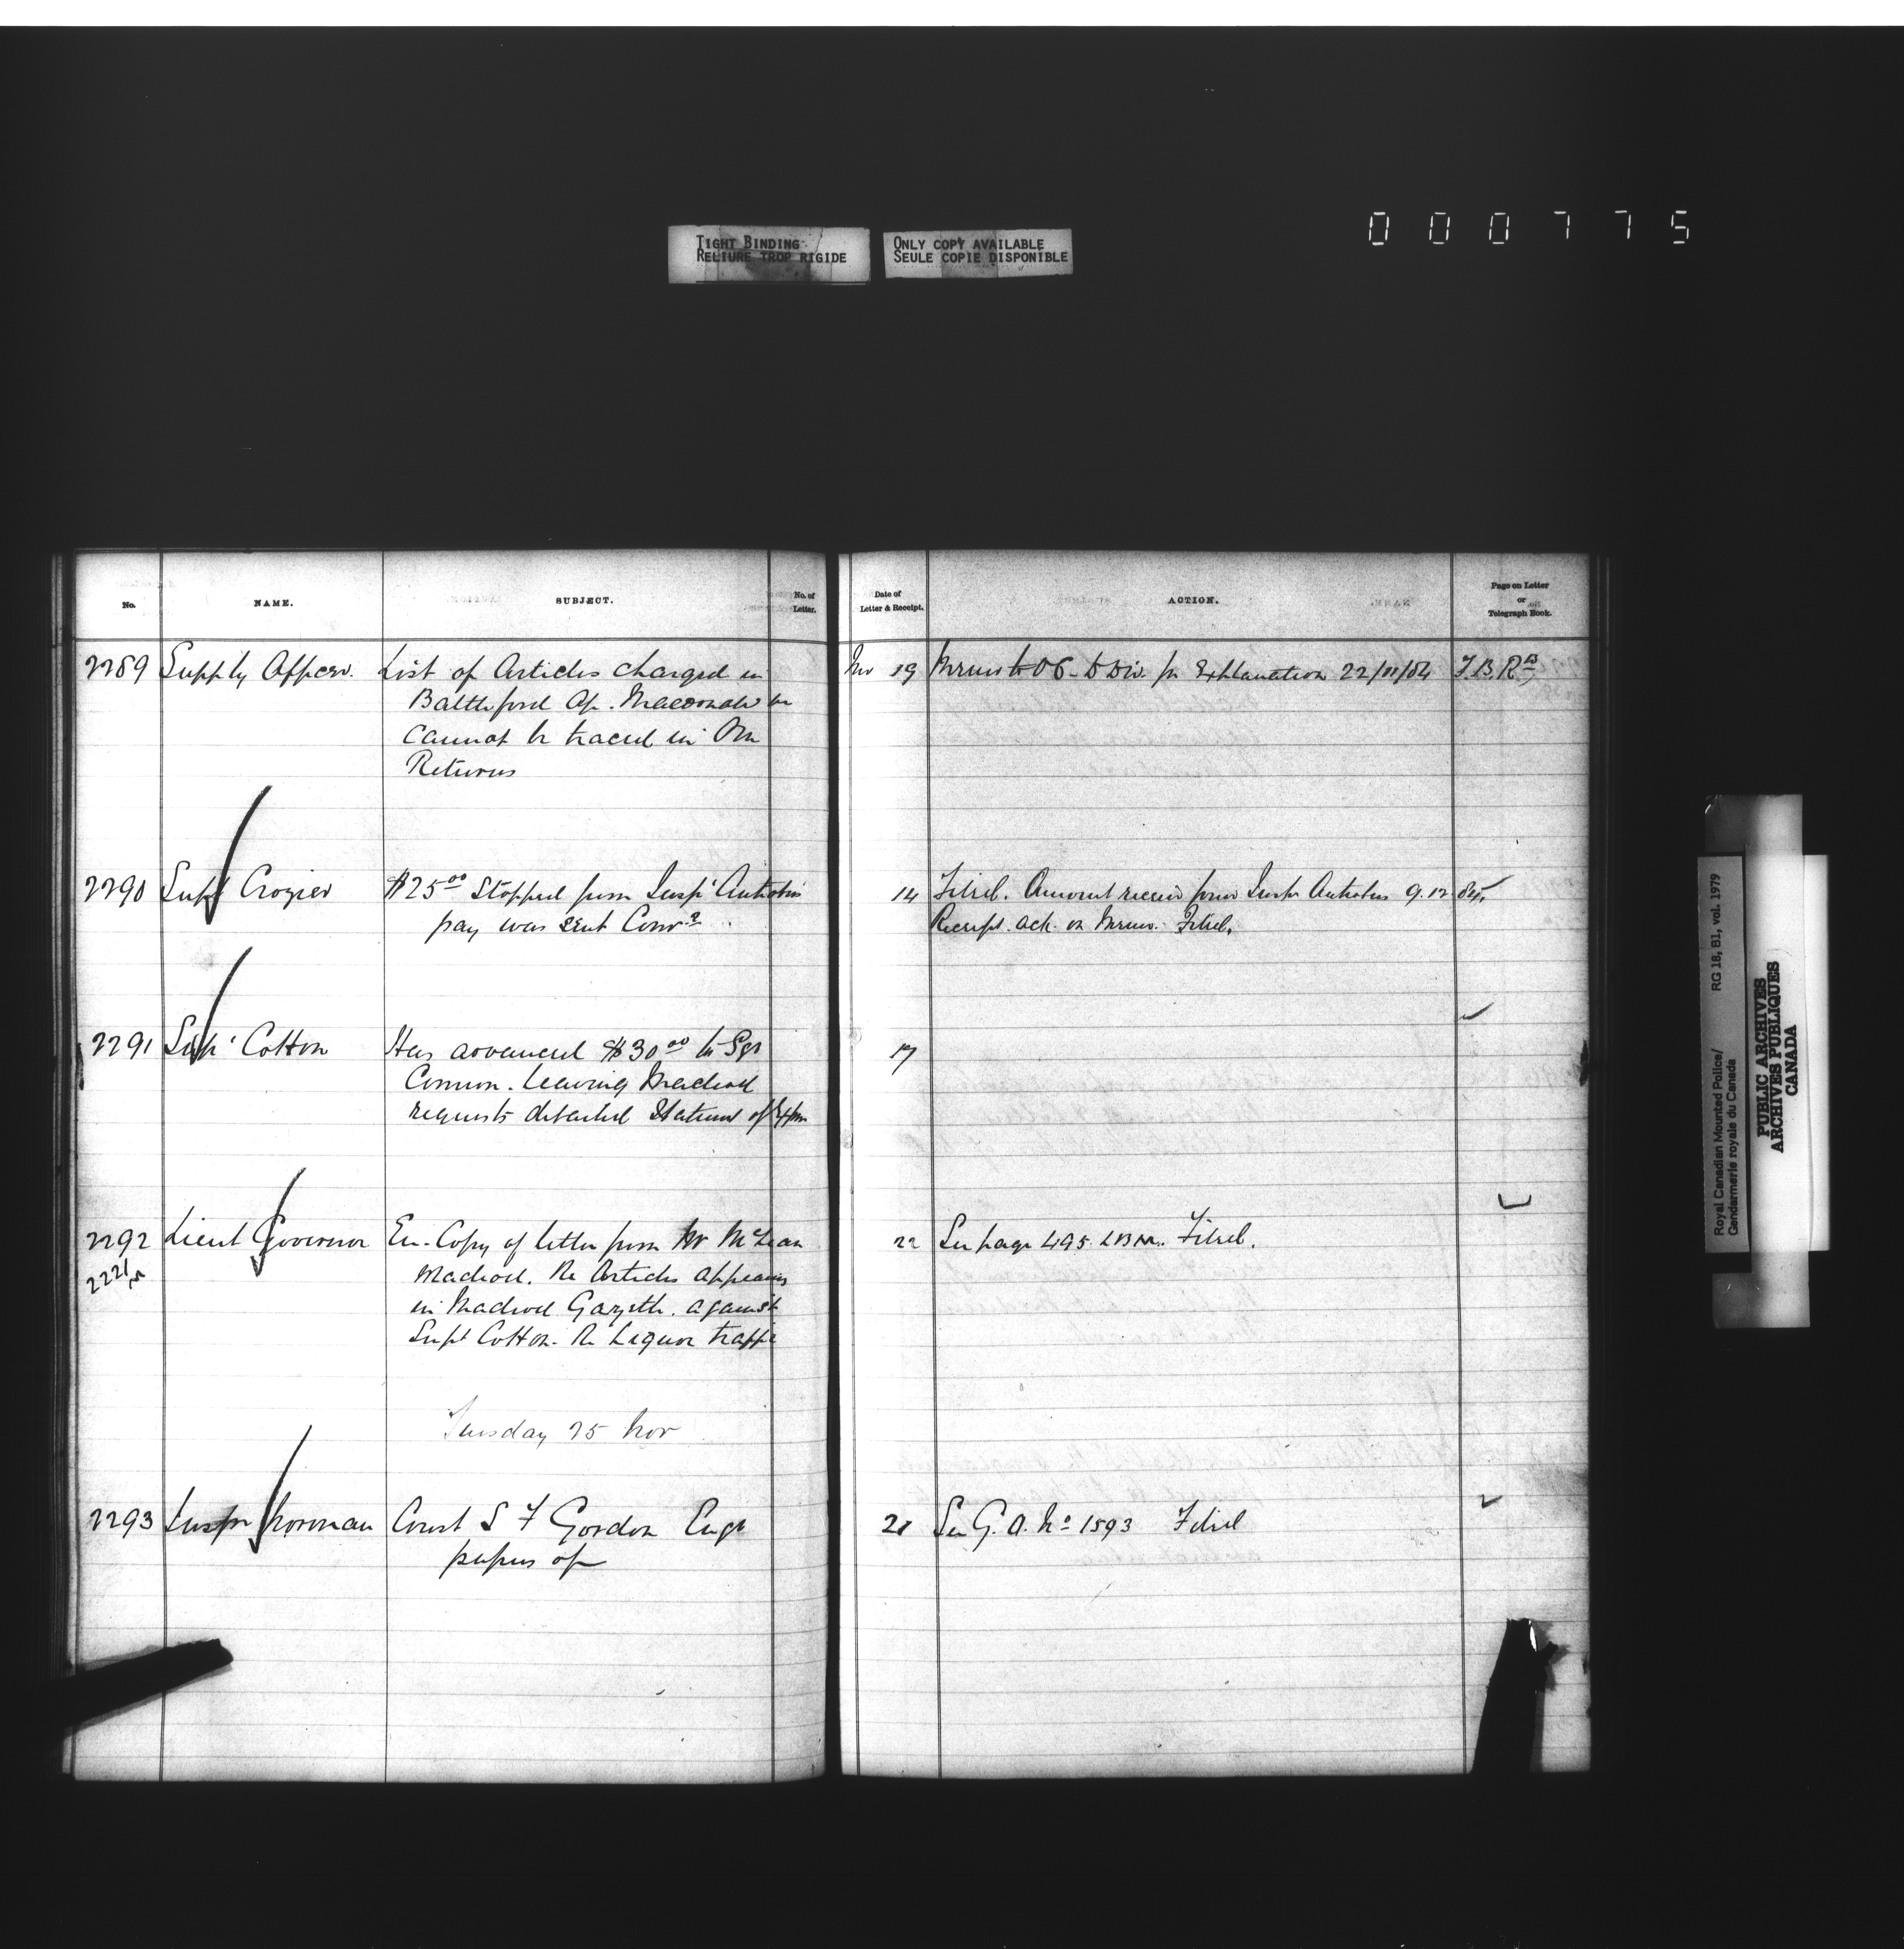 TIGHT BINDING
RELIURE TROP RIGIDE
ONLY COPY AVAILABLE
SEULE COPIE DISPONIBLE
000775
No.
NAME.
SUBJECT.
No. of
Letter.
Date of
Letter & Receipt.
ACTION.
Page on Letter
or
Telegraph Book.
2289 Supply Officer. List of Articles charged in
Battleford
cannot be traced in
Returns
Nov 19 Div. for Explanation 22/11/84
2290 Supt Crozier $25.00 Stopped from Insp Antrobus
pay was sent
14 Filed. Amount received from Insp Antrobus 9.12.84
Receipt ack. on Memo. Filed.
2291 Supt Cotton Has advanced $30.00 to
leaving Macleod
requests detailed Statement of
17
2292 Lieut Governor En. Copy of letter from Mr McLean
2221
Macleod. Re Articles appearing
in Macleod Gazette. against
Supt Cotton. Re Liquor traffic
22 See page 495 LBM. Filed.
Tuesday 25 Nov
2293 Inspr Norman Const S F Gordon Engt
papers of
21 See G.O. No 1593 Filed
Royal Canadian Mounted Police/
Gendarmerie royale du Canada
RG 18, B1, vol. 1979
PUBLIC ARCHIVES
ARCHIVES PUBLIQUES
CANADA